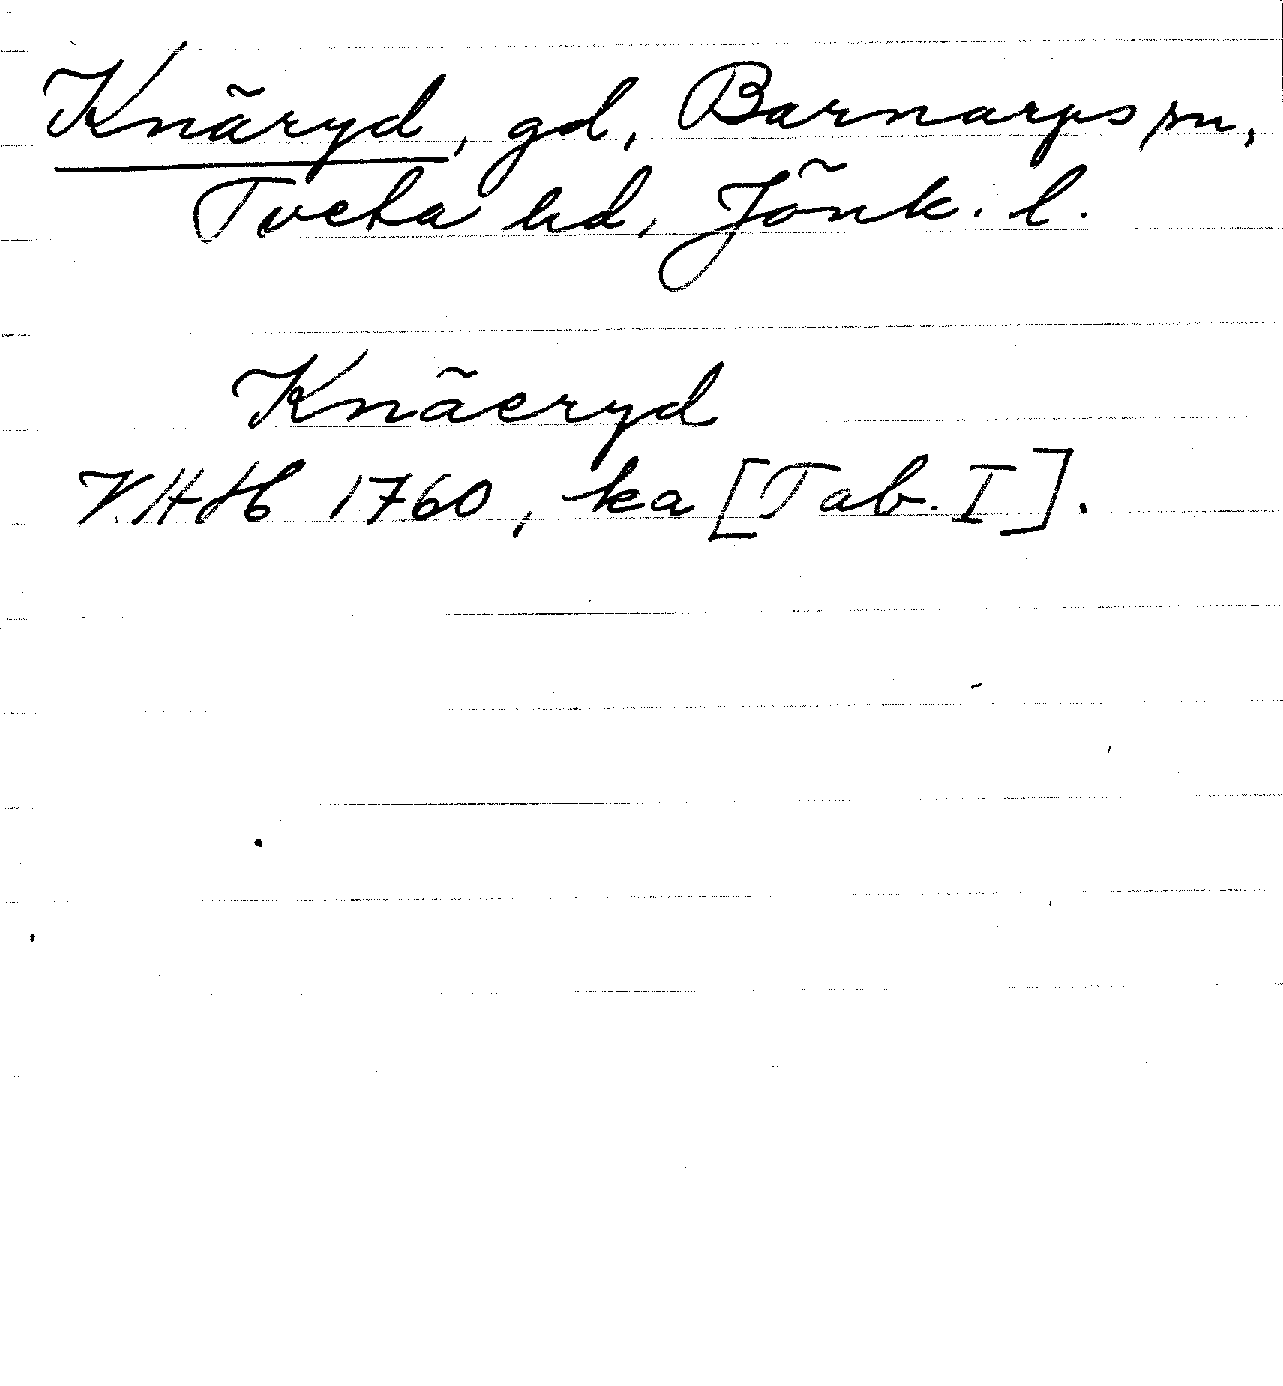 Knäryd, gd, Barnarps sn,
Tveta hd, Jönk. l.
Knäeryd
1760, ka [Tab. I].